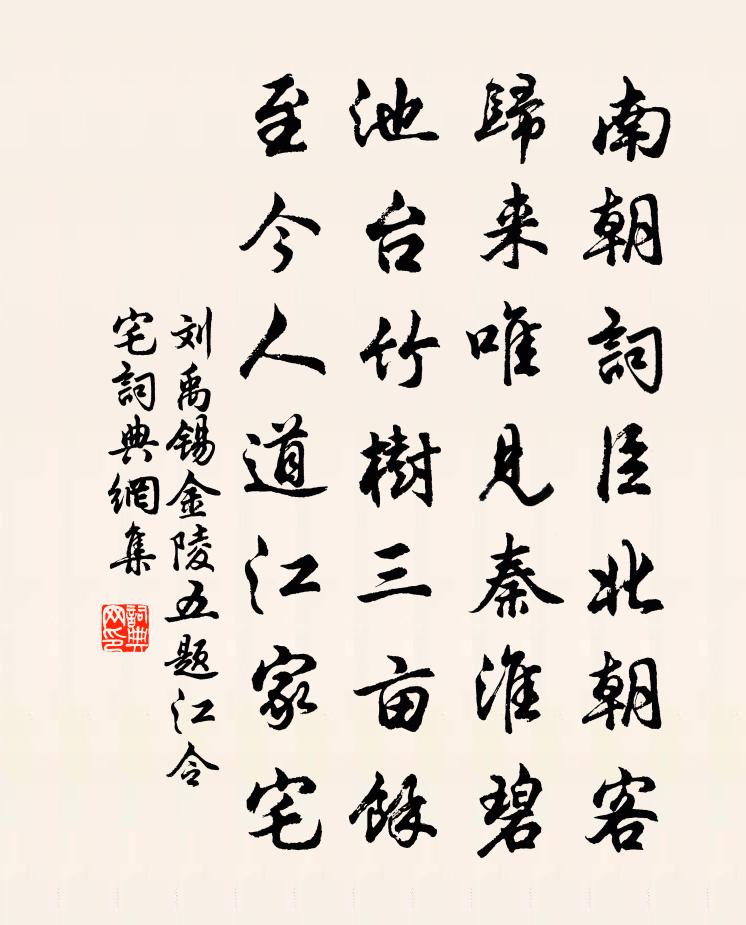 南朝詞臣北朝客
歸来唯見秦淮碧
池台竹樹三亩餘
至今人道江家宅
刘禹锡金陵五题江令
宅詞典網集
詞典网印